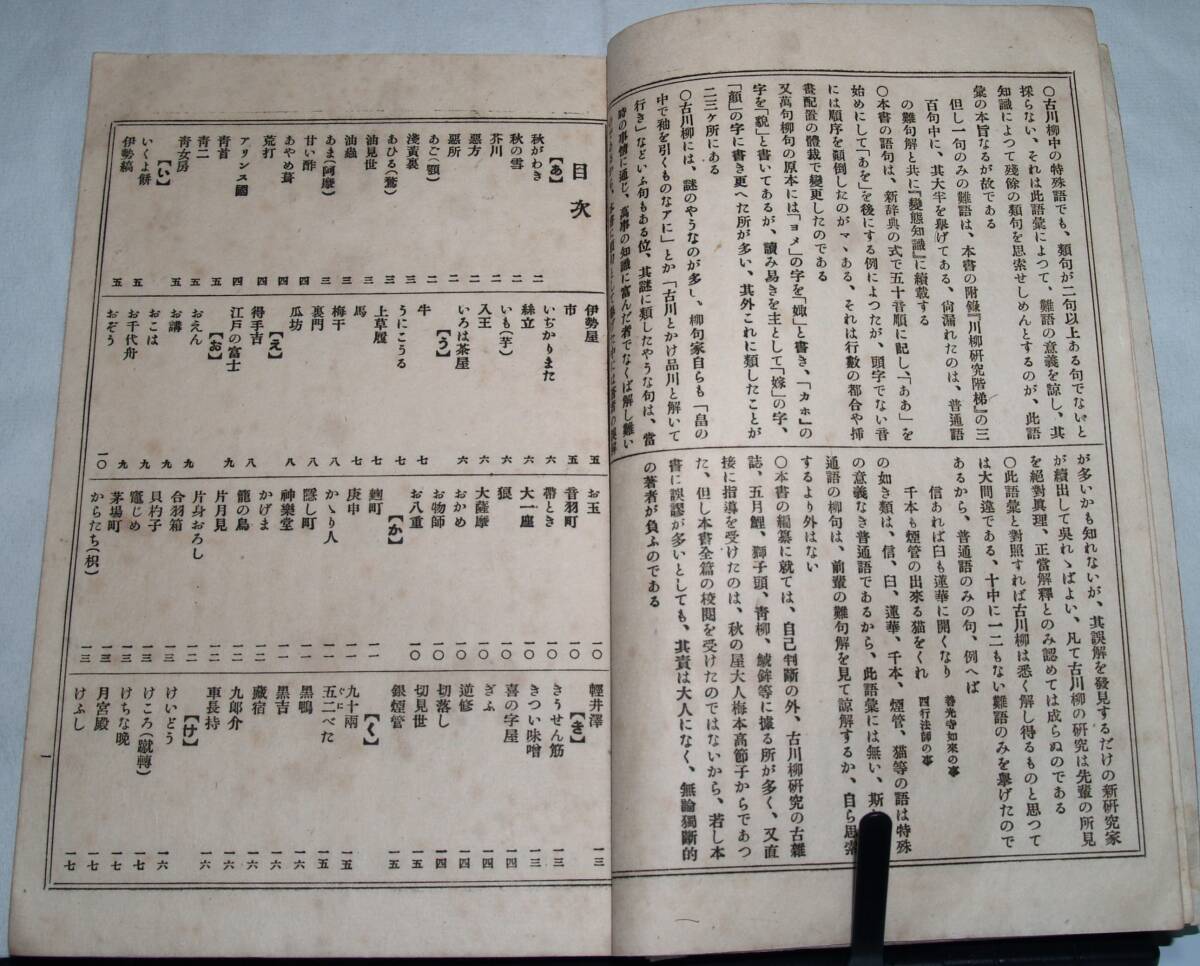 〇古川柳中の特殊語でも、類句が二句以上ある句でないと
採らない、それは此語彙によつて、難語の意義を諒し、其
知識によつて残餘の類句を思索せしめんとするのが、此語
彙の本旨なるが故である
但し一句のみの難語は、本書の附錄『川柳研究階梯』の三
百句中に、其大半を擧げてある、尙漏れたのは、普通語
の難句解と共に『變態知識』に續載する
〇本書の語句は、新辞典の式で五十音順に記し、「ああ」を
始めにして「あを」を後にする例によつたが、頭字でない音
には順序を顚倒したのがマヽある、それは行數の都合や挿
畫配置の體裁で變更したのである
又萬句柳句の原本には「ヨメ」の字を「娵」と書き、「カホ」の
字を「㒵」と書いてあるが、讀み易きを主として「嫁」の字、
「顔」の字に書き更へた所が多い、其外これに類したことが
二三ケ所にある
〇古川柳には、謎のやうなのが多し、柳句家自らも「畠の
中で秞を引くものなアに」とか「古川とかけ品川と解いて
行き」などといふ句もある位、其謎に類したやうな句は、當
時の事情に通じ、萬事の知識に富んだ者でなくば解し難い
が多いかも知れないが、其誤解を發見するだけの新研究家
が續出して吳れゝばよい、凡て古川柳の研究は先輩の所見
を絕對眞理、正當解釋とのみ認めては成らぬのである
〇此語彙と對照すれば古川柳は悉く解し得るものと思つて
は大間違である、十中に一二もない難語のみを擧げたので
あるから、普通語のみの句、例へば
信あれば臼も蓮華に開くなり 善光寺如來の事
千本も煙管の出來る猫をくれ 西行法師の事
の如き類は、信、臼、蓮華、千本、煙管、猫等の語は特殊
の意義なき普通語であるから、此語彙には無い、斯
通語の柳句は、前輩の難句解を見て諒解するか、自ら思索
するより外はない
〇本書の編纂に就ては、自己判斷の外、古川柳研究の古雜
誌、五月鯉、獅子頭、靑柳、鯱鉾等に據る所が多く、又直
接に指導を受けたのは、秋の屋大人梅本高節子からであつ
た、但し本書全篇の校閱を受けたのではないから、若し本
書に誤謬が多いとしても、其責は大人になく、無論獨斷的
の著者が負ふのである
目次
【あ】
秋がわき 一
秋の雪 一
芥川 一
惡方 二
惡所 二
あご(顎) 二
淺黃裏 二
あひる(鶩) 三
油見世 三
油蟲 三
あま(阿魔) 三
甘い酢 四
あやめ葺 四
荒打 四
アリンス國 四
靑首 五
靑二 五
靑女房 五
【い】
いくよ餅 五
伊勢縞 五
伊勢屋 五
市 五
いぢかりまた 六
絲立 六
いも(芋) 六
入王 六
いろは茶屋 六
【う】
牛 七
うにこうる 七
上草履 七
馬 七
梅干 八
裏門 八
瓜坊 八
【え】
得手吉 八
江戸の富士 九
【お】
おえん 九
お講 九
おこは 九
お千代舟 九
おぞう 一〇
お玉 一〇
音羽町 一〇
帶とき 一〇
大一座 一〇
狼 一〇
大薩摩 一〇
おかめ 一〇
お物師 一〇
お八重 一〇
【か】
麹町 一一
庚申 一一
かゝり人 一一
隱し町 一一
神樂堂 一一
かげま 一二
籠の鳥 一二
片月見 一二
片身おろし 一二
合羽箱 一二
貝杓子 一三
竈じめ 一三
茅場町 一三
からたち(枳) 一三
輕井澤 一三
【き】
きうせん筋 一三
きつい味噌 一三
喜の字屋 一四
ぎふ 一四
逆修 一四
切落し 一四
切見世 一五
銀煙管 一五
【く】
九十兩 一五
五二べた 一五
黑鴨 一六
黑吉 一六
藏宿 一六
九郞介 一六
車長持 一六
【け】
けいどう 一六
けころ(蹴轉) 一七
けちな晩 一七
月宮殿 一七
けふし 一七
一